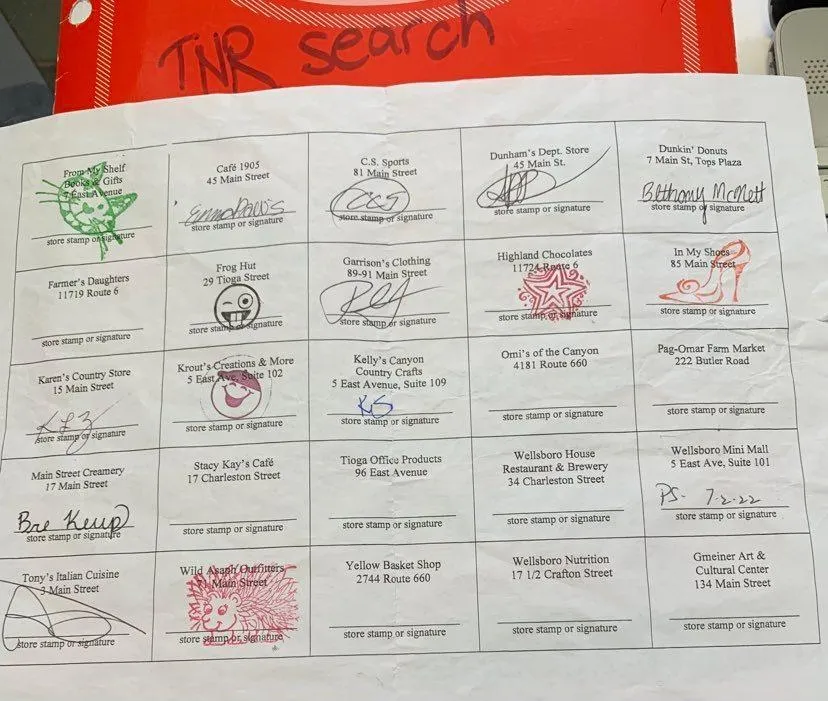 TNR search
From My Shelf
Books & Gifts
7 East Avenue
store stamp or signature
Café 1905
45 Main Street
store stamp or signature
C.S. Sports
81 Main Street
store stamp or signature
Dunham's Dept. Store
45 Main St.
store stamp or signature
Dunkin' Donuts
7 Main St, Tops Plaza
Bethany McNett
store stamp or signature
Farmer's Daughters
11719 Route 6
store stamp or signature
Frog Hut
29 Tioga Street
store stamp or signature
Garrison's Clothing
89-91 Main Street
store stamp or signature
Highland Chocolates
11724 Route 6
store stamp or signature
In My Shoes
85 Main Street
store stamp or signature
Karen's Country Store
15 Main Street
store stamp or signature
Krout's Creations & More
5 East Ave, Suite 102
Kelly's Canyon
Country Crafts
5 East Avenue, Suite 109
KS
store stamp or signature
Omi's of the Canyon
4181 Route 660
store stamp or signature
Pag-Omar Farm Market
222 Butler Road
store stamp or signature
Main Street Creamery
17 Main Street
Bre Keup
store stamp or signature
Stacy Kay's Café
17 Charleston Street
store stamp or signature
Tioga Office Products
96 East Avenue
store stamp or signature
Wellsboro House
Restaurant & Brewery
34 Charleston Street
store stamp or signature
Wellsboro Mini Mall
5 East Ave, Suite 101
PS- 7-2-22
store stamp or signature
Tony's Italian Cuisine
3 Main Street
store stamp or signature
Wild Asaph Outfitters
71 Main Street
store stamp or signature
Yellow Basket Shop
2744 Route 660
store stamp or signature
Wellsboro Nutrition
17 1/2 Crafton Street
store stamp or signature
Gmeiner Art &
Cultural Center
134 Main Street
store stamp or signature